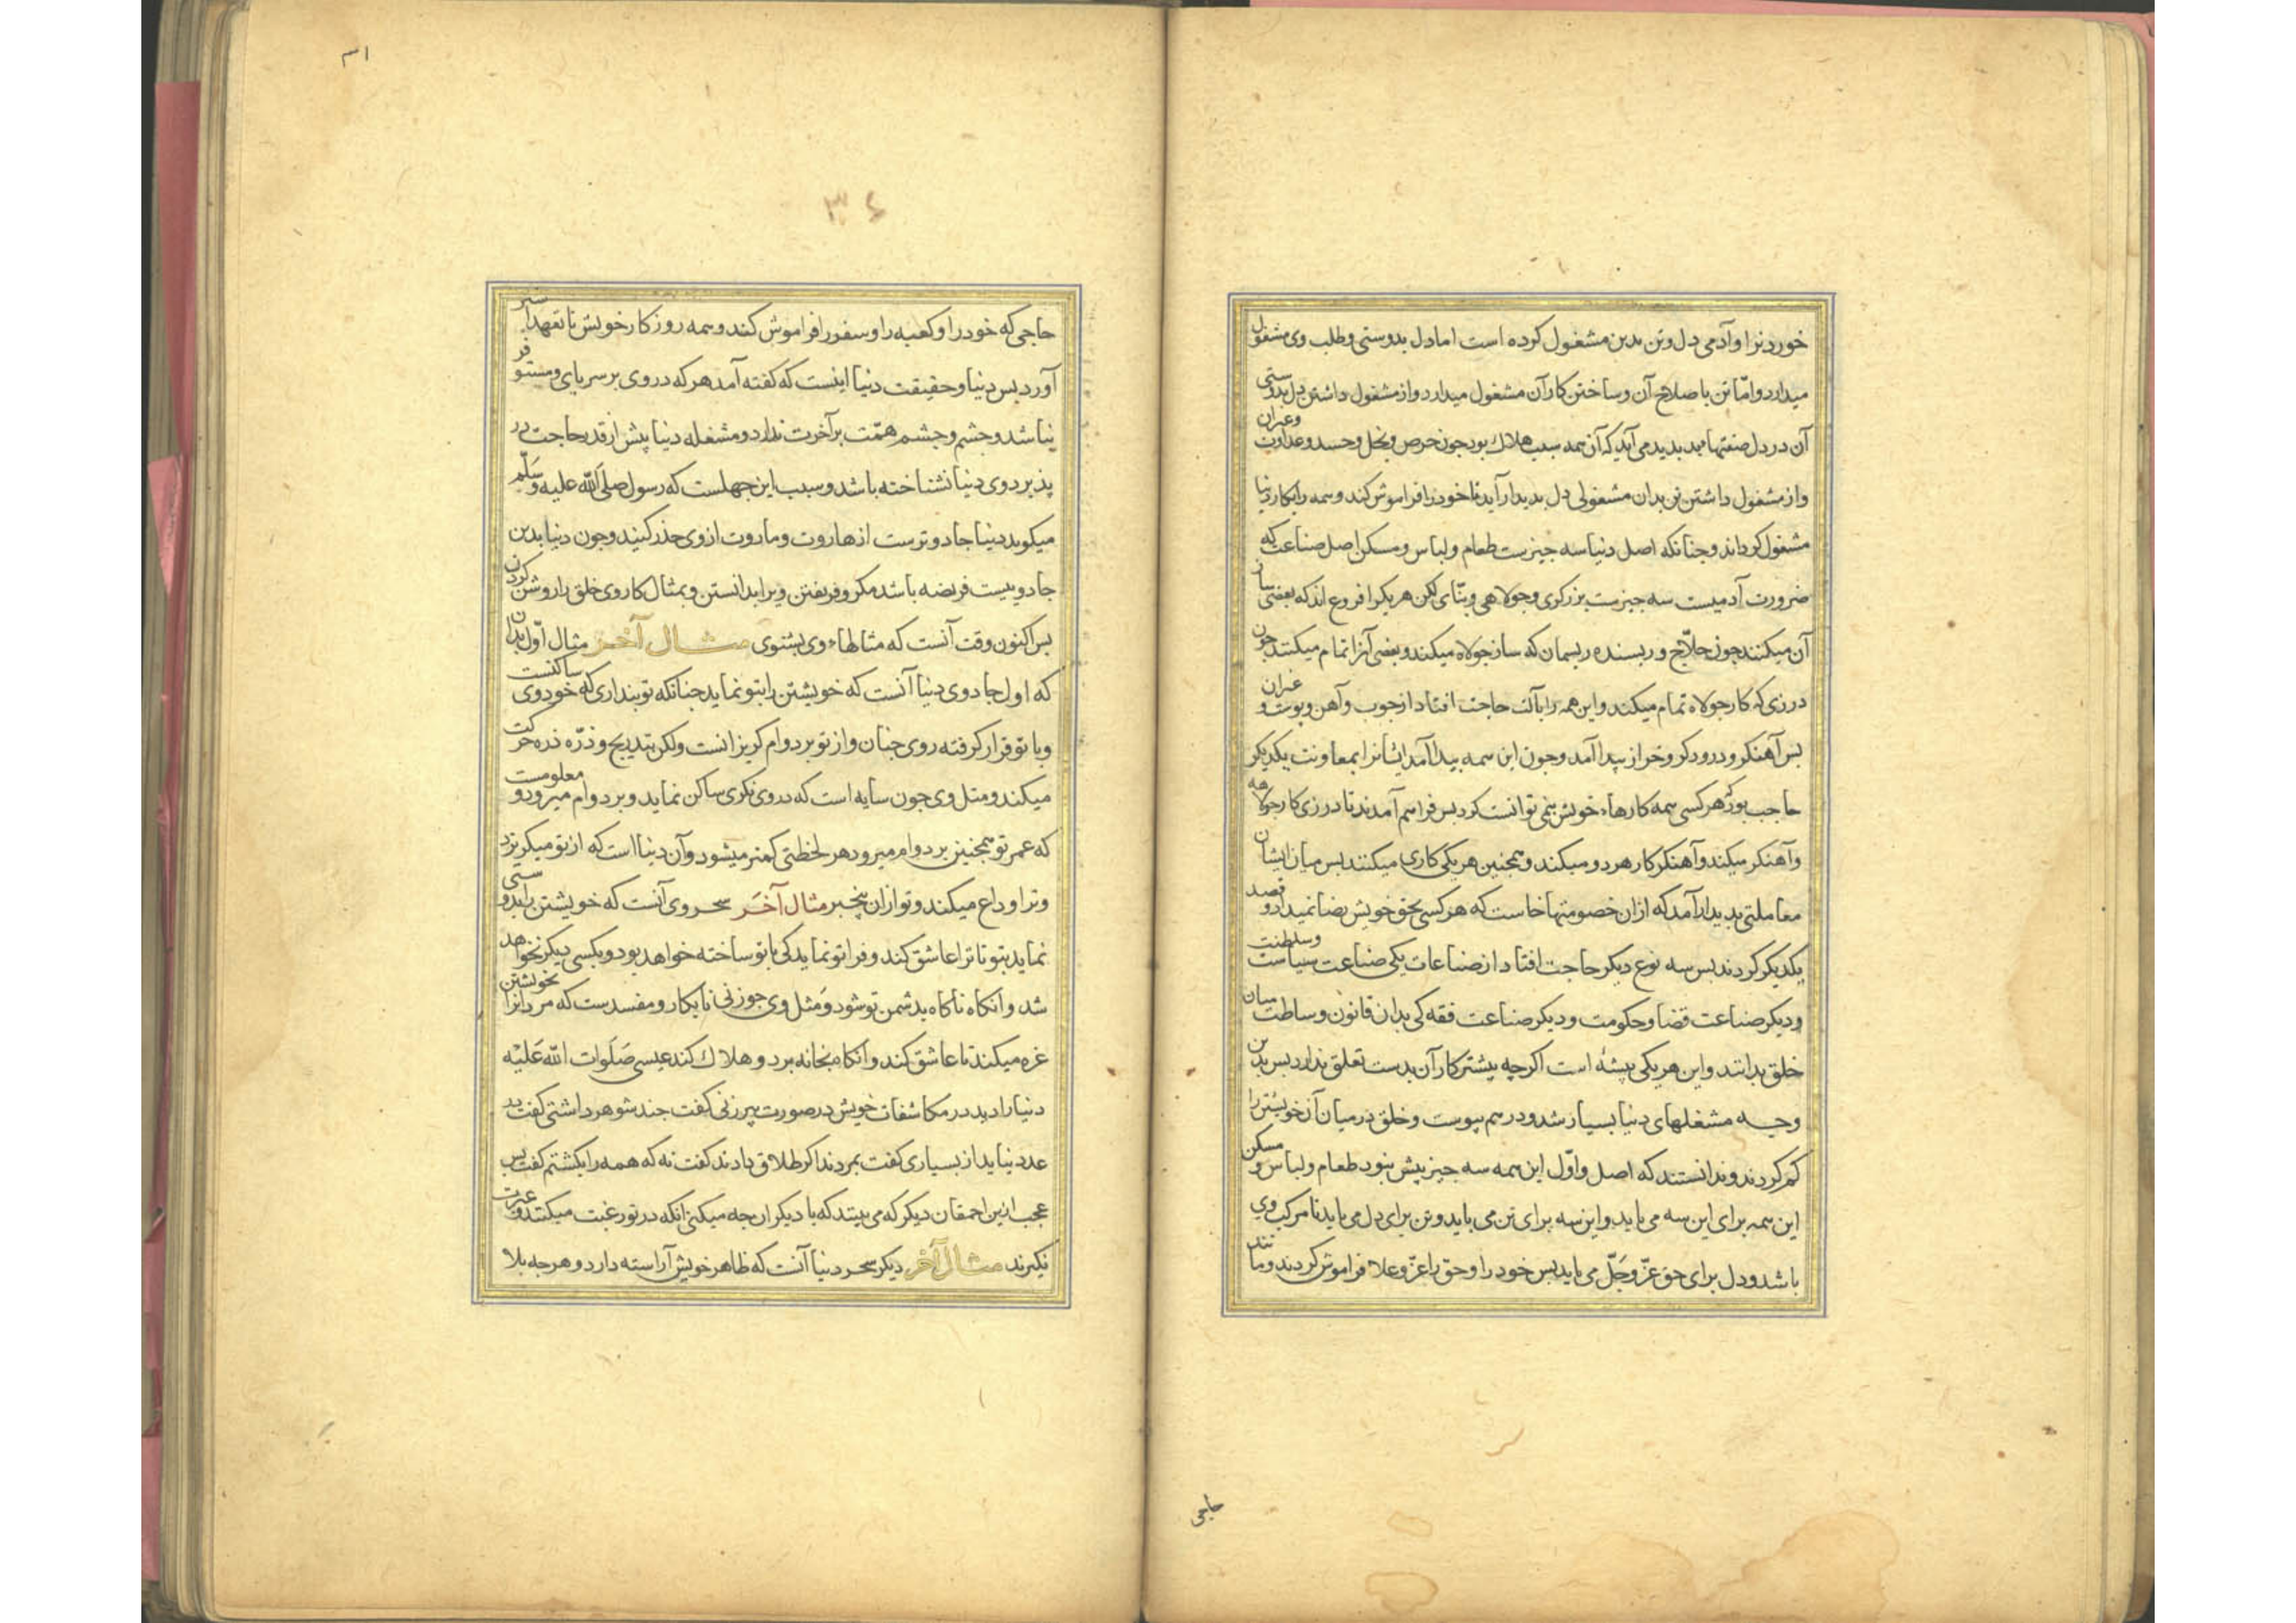 خوردنرا و آدمی دل و تن بدین مشغول کرده است اما دل بدوستی و طلب وی مشغول
میدارد و امّا تن باصلاح آن و ساختن کار آن مشغول میدارد و از مشغول داشتن دل بدوستی
آن در دل صفتها بد پدید می آید که آن همه سبب هلاک بود جون حرص و بخل و حسد و عداوت و غیر آن
و از مشغول داشتن تن بدان مشغولی دل بدیدار آید تا خود را فراموش کند و همه را بکار دنیا
مشغول کرداند و جنانکه اصل دنیا سه جیزست طعام و لباس و مسکن اصل صناعت که
ضرورت آدمیست سه جیزست برزکری و جولاهی و بنّای لکن هر یکرا فروع اند که بعضی ساز
آن میکنند جون حلّاج و ریسنده ریسمان که ساز جولاه میکند و بعضی آنرا تمام میکنند جون
درزی که کار جولاه تمام میکند و این همه را بآلت حاجت افتاد از جوب و آهن و پوست و غیر آن
بس آهنکر و درودکر و خراز پیدا آمد و جون این همه پیدا آمد ایشانرا بمعاونت یکدیکر
حاجب بود که هر کسی همه کارهاء خویش نمی توانست کرد بس فراهم آمدند تا درزی کار جولاهه
و آهنکر میکند و آهنکر کار هر دو میکند و همجنین هر یکی کاری میکنند بس میان ایشان
معاملتی بدیدار آمد که از ان خصومتها خاست که هر کسی بحق خویش رضا نمیداد و قصد
یکدیکر کردند بس سه نوع دیکر حاجت افتاد از صناعات یکی صناعت سیاست و سلطنت
و دیکر صناعت قضا و حکومت و دیکر صناعت فقه کی بدان قانون وساطت میان
خلق بدانند و این هر یکی پیشه است اکرچه بیشتر کار آن بدست تعلق ندارد بس بدین
وجه مشغلهای دنیا بسیار شد و در هم پیوست و خلق در میان آن خویشتن را
کم کردند و ندانستند که اصل و اوّل این همه سه جیز بیش نبود طعام و لباس و مسکن
این همه برای این سه می باید و این سه برای تن می باید و تن برای دل می باید تا مرکب وی
باشد و دل برای حق عزّ و جلّ می باید بس خود را و حق را عزّ و علا فراموش کردند و مانند
حاجی
۳۱
۳۴
حاجی که خود را و کعبه را و سفر را فراموش کند و همه روزکار خویش با تعهد اشتر
آورد بس دنیا و حقیقت دنیا اینست که کفته آمد هر که در وی بر سر پای و مستوفر
نباشد و جشم و جشم همّت بر آخرت ندارد و مشغله دنیا پیش از قدر حاجت در
پذیرد وی دنیا نشناخته باشد و سبب این جهلست که رسول صلی الله علیه و سلّم
میکوید دنیا جادوترست از هاروت و ماروت از وی حذر کنید و جون دنیا بدین
جادوییست فریضه باشد مکر و فریفتن ویرا بدانستن و بمثال کار وی خلق را روشن کردن
بس اکنون وقت آنست که مثالهاء وی بشنوی مثال آخر مثال اوّل بدان
که اول جادوی دنیا آنست که خویشتن را بتو نماید جنانکه تو بنداری که خود وی ساکنست
و با تو قرار کرفته روی جنان و از تو بر دوام کریزانست ولکن بتدریج و ذرّه ذره حرکت
میکند و مثل وی جون سایه است که در وی نکری ساکن نماید و بر دوام میرود و معلومست
که عمر تو همجنین بر دوام میرود هر لحظتی کمتر میشود و آن دنیا است که از تو میکریزد
و ترا وداع میکند و تو از ان بیخبر مثال آخر سحر وی آنست که خویشتن را بدوستی
نماید بتو تا ترا عاشق کند و فرا تو نماید کی با تو ساخته خواهد بود و بکسی دیکر نخواهد
شد و آنکاه ناکاه بدشمن تو شود و مثل وی جو زنی نابکار و مفسدست که مردانرا بخویشتن
غره میکند تا عاشق کند و آنکاه بخانه برد و هلاک کند عیسی صلوات الله علیه
دنیا را دید در مکاشفات خویش در صورت پیر زنی کفت جند شوهر داشتی کفت در
عدد نیاید از بسیاری کفت بمردند اکر طلاق دادند کفت نه که همه را بکشتم کفت بس
عجب ازین احمقان دیکر که می بینند که با دیکران جه میکنی آنکه در تو رغبت میکنند و عبرت
نکیرند مثال آخر دیکر سحر دنیا آنست که ظاهر خویش آراسته دارد و هرجه بلا